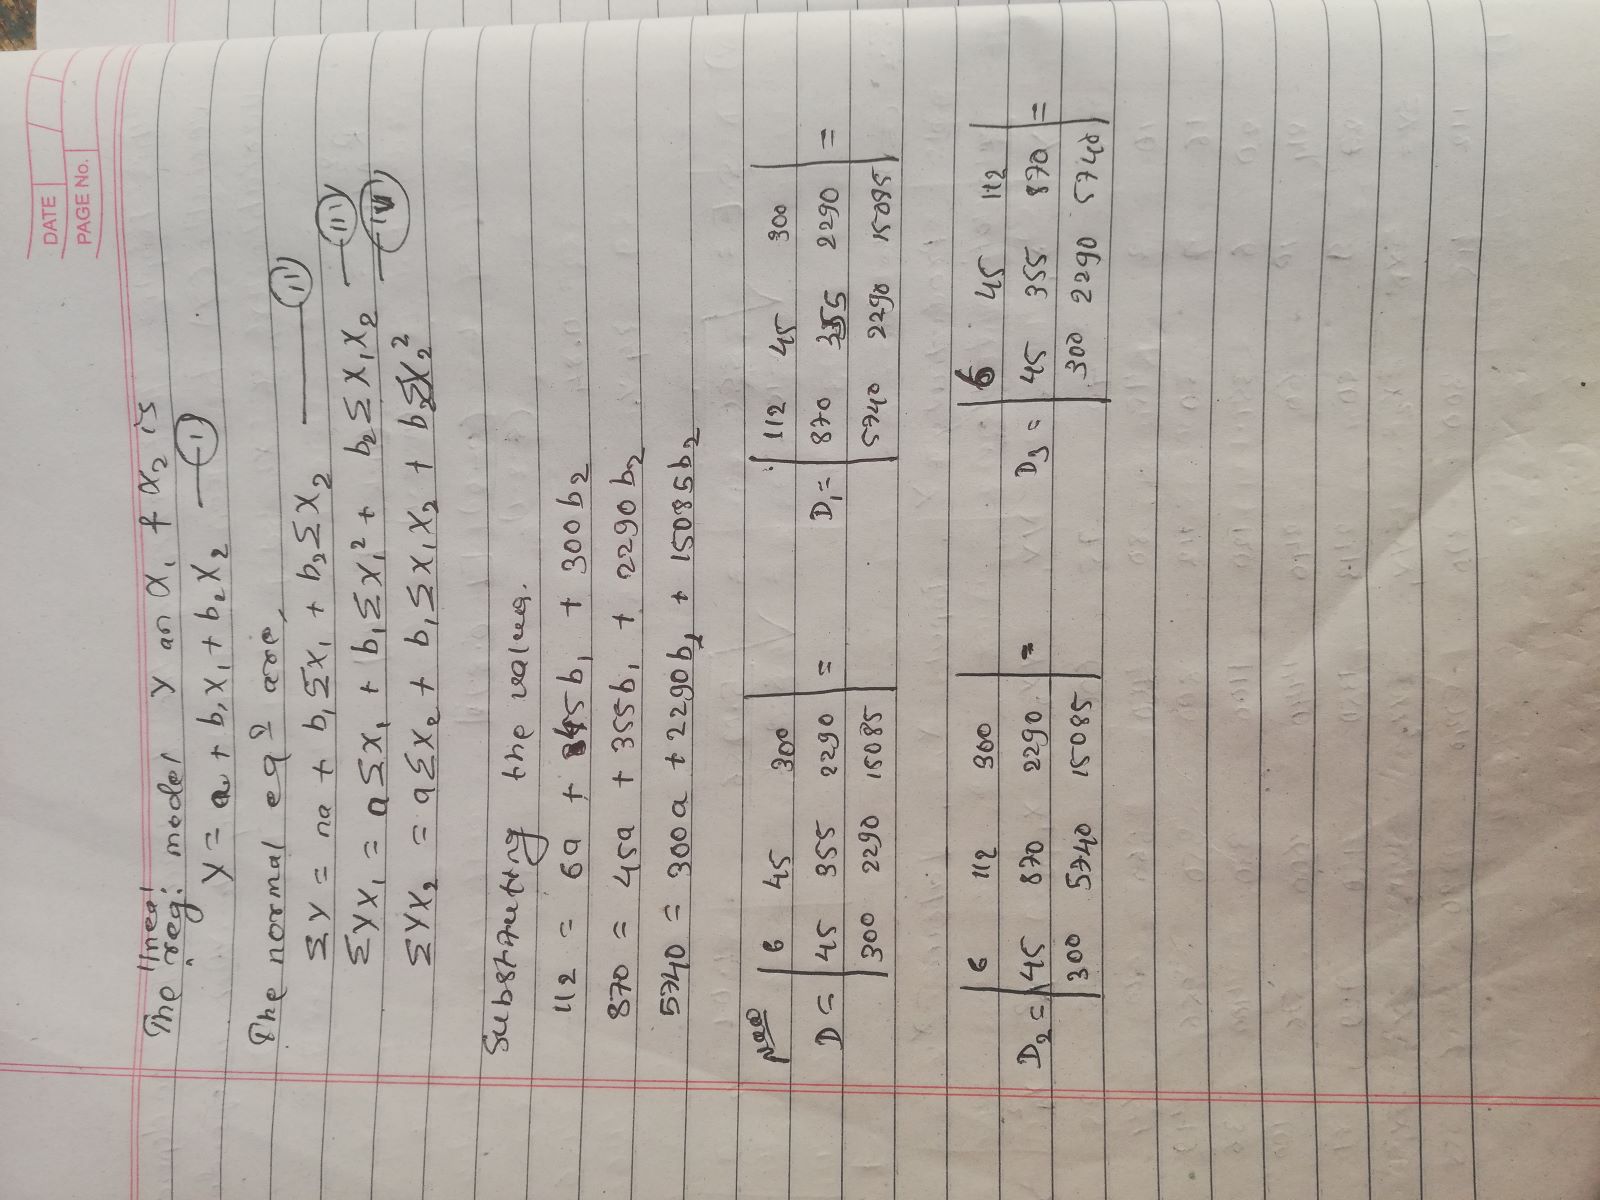 DATE
PAGE No.
linear
The reg: model Y on X₁ & X₂ is
Y = a + b₁X₁ + b₂X₂ —(i)
The normal eqⁿ are,
ΣY = na + b₁ΣX₁ + b₂ΣX₂ —(ii)
ΣYX₁ = aΣX₁ + b₁ΣX₁² + b₂ΣX₁X₂ —(iii)
ΣYX₂ = aΣX₂ + b₁ΣX₁X₂ + b₂ΣX₂² —(iv)
Substituting the values.
112 = 6a + 45b₁ + 300b₂
870 = 45a + 355b₁ + 2290b₂
5740 = 300a + 2290b₁ + 15085b₂
Now
D = | 6 45 300 | =
| 45 355 2290 |
| 300 2290 15085 |
D₁ = | 112 45 300 | =
| 870 355 2290 |
| 5740 2290 15085 |
D₂ = | 6 112 300 | =
| 45 870 2290 |
| 300 5740 15085 |
D₃ = | 6 45 112 | =
| 45 355 870 |
| 300 2290 5740 |